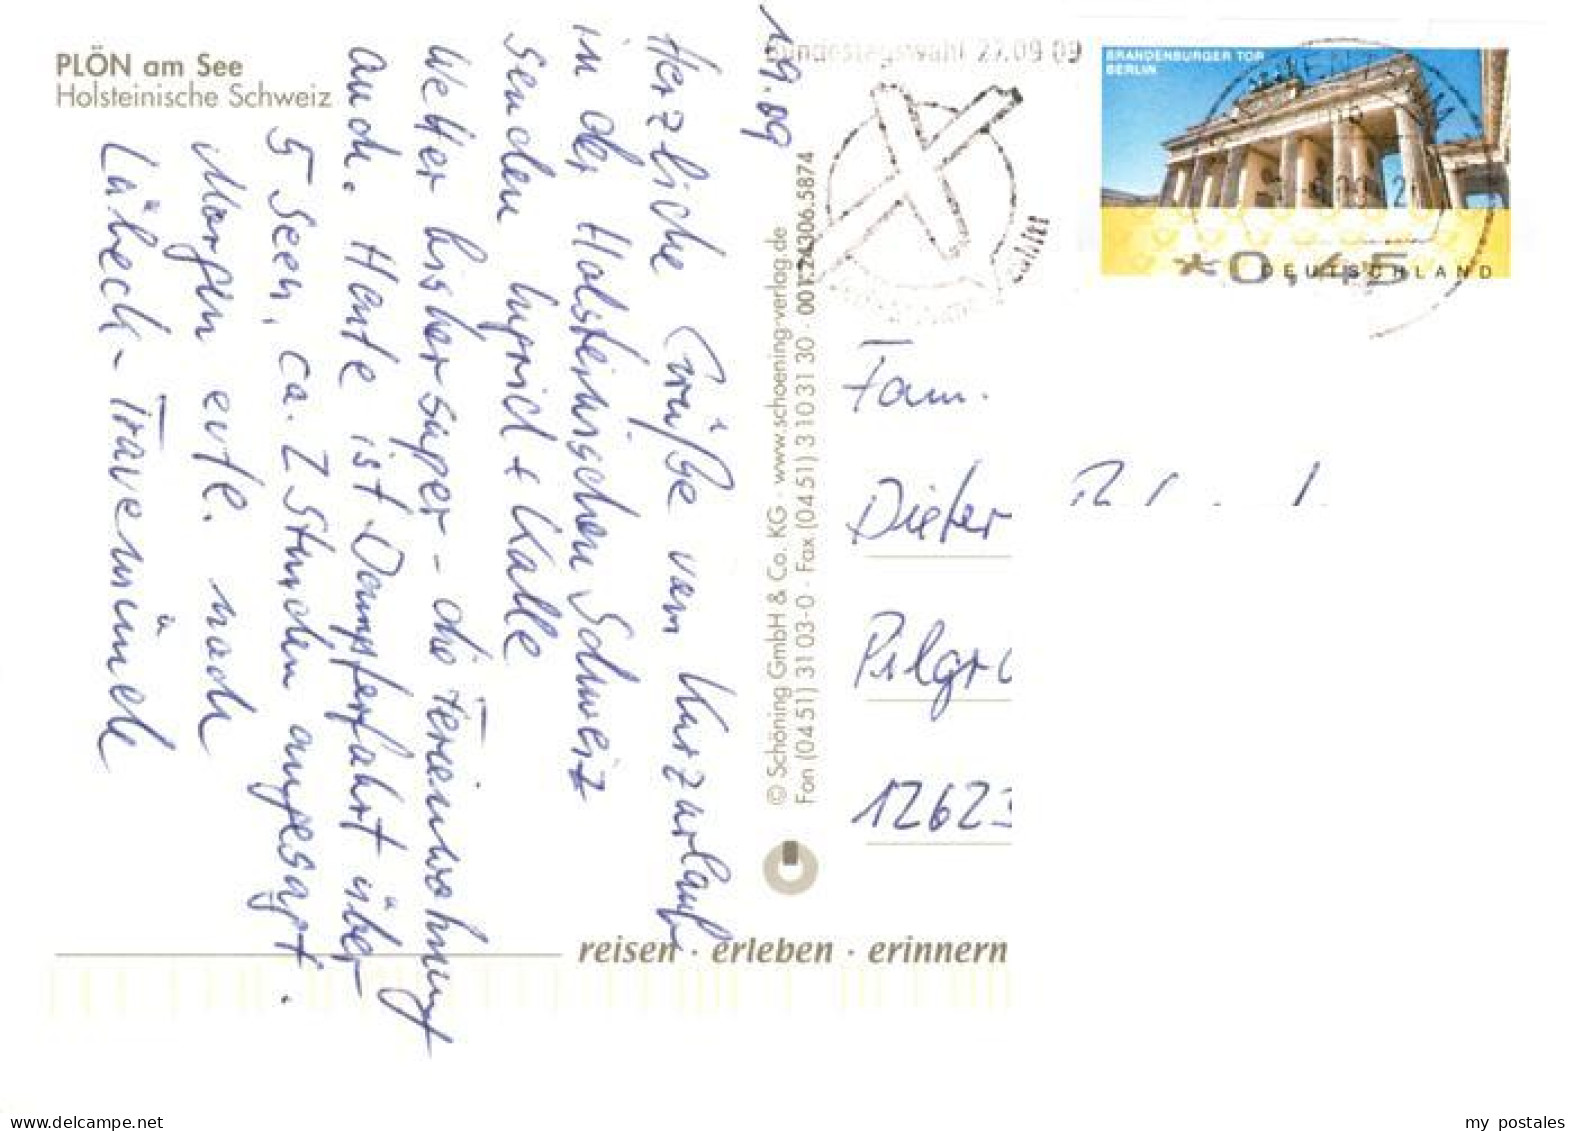 PLÖN am See
Holsteinische Schweiz
1.9.09
Herzliche Grüße vom Kurzurlaub
in der Holsteinischen Schweiz
senden + Kalle
Wetter bisher super - die Ferienwohnung
auch. Heute ist Dampferfahrt über
5 Seen, ca. 2 Stunden angesagt.
Morgen evtl. nach
Lübeck-Travemünde
© Schöning GmbH & Co. KG · www.schoening-verlag.de
Fon (04 51) 31 03-0 · Fax (04 51) 3 10 31 30 · 001.24306.5874
Bundestagswahl 27.09.09
BRANDENBURGER TOR
BERLIN
DEUTSCHLAND
*0,45
Fam.
Dieter
Pilgr
12623
reisen · erleben · erinnern
www.delcampe.net
my_postales